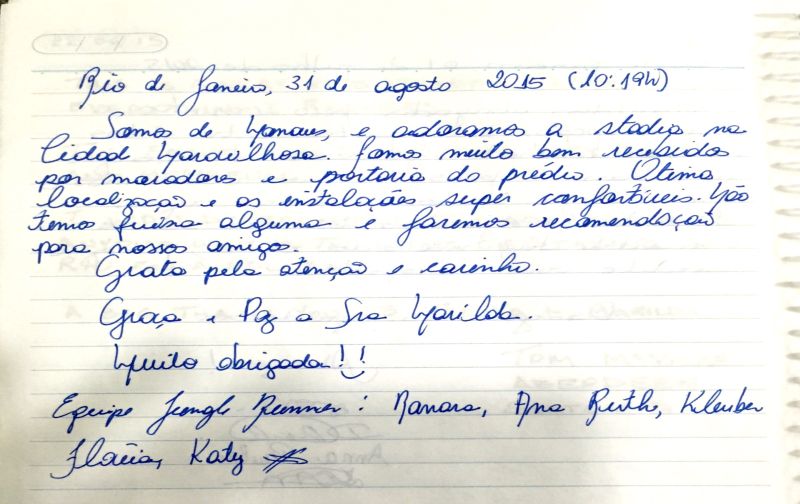 Rio de Janeiro, 31 de agosto 2015 (10:19h)
Somos de Manaus, e adoramos a stadia na
Cidad Maravilhosa. Fomos muito bem recebidos
por moradores e portaria do prédio. Otima
localização e as instalações super confortáveis. Não
temos queixa alguma e faremos recomendação
para nossos amigos.
Grata pela atenção e carinho.
Graça e Paz a Sra Marilda.
Muito obrigada!!
Equipe Jungle Runner: Nanara, Ana Ruth, Kleuber
Flávia, Katy